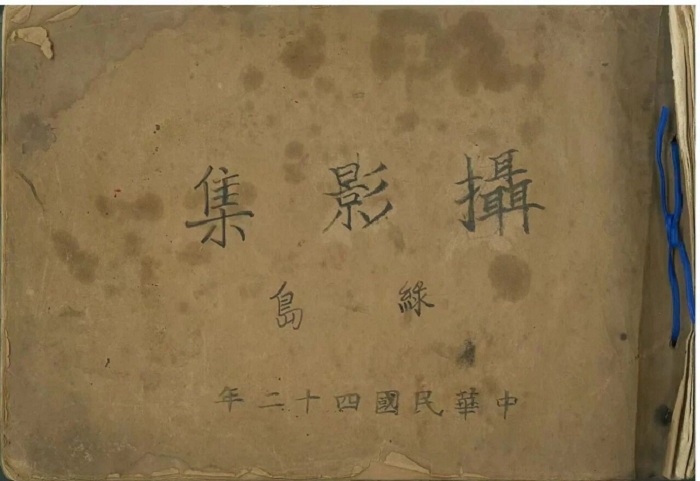 攝影集
綠島
中華民國四十二年